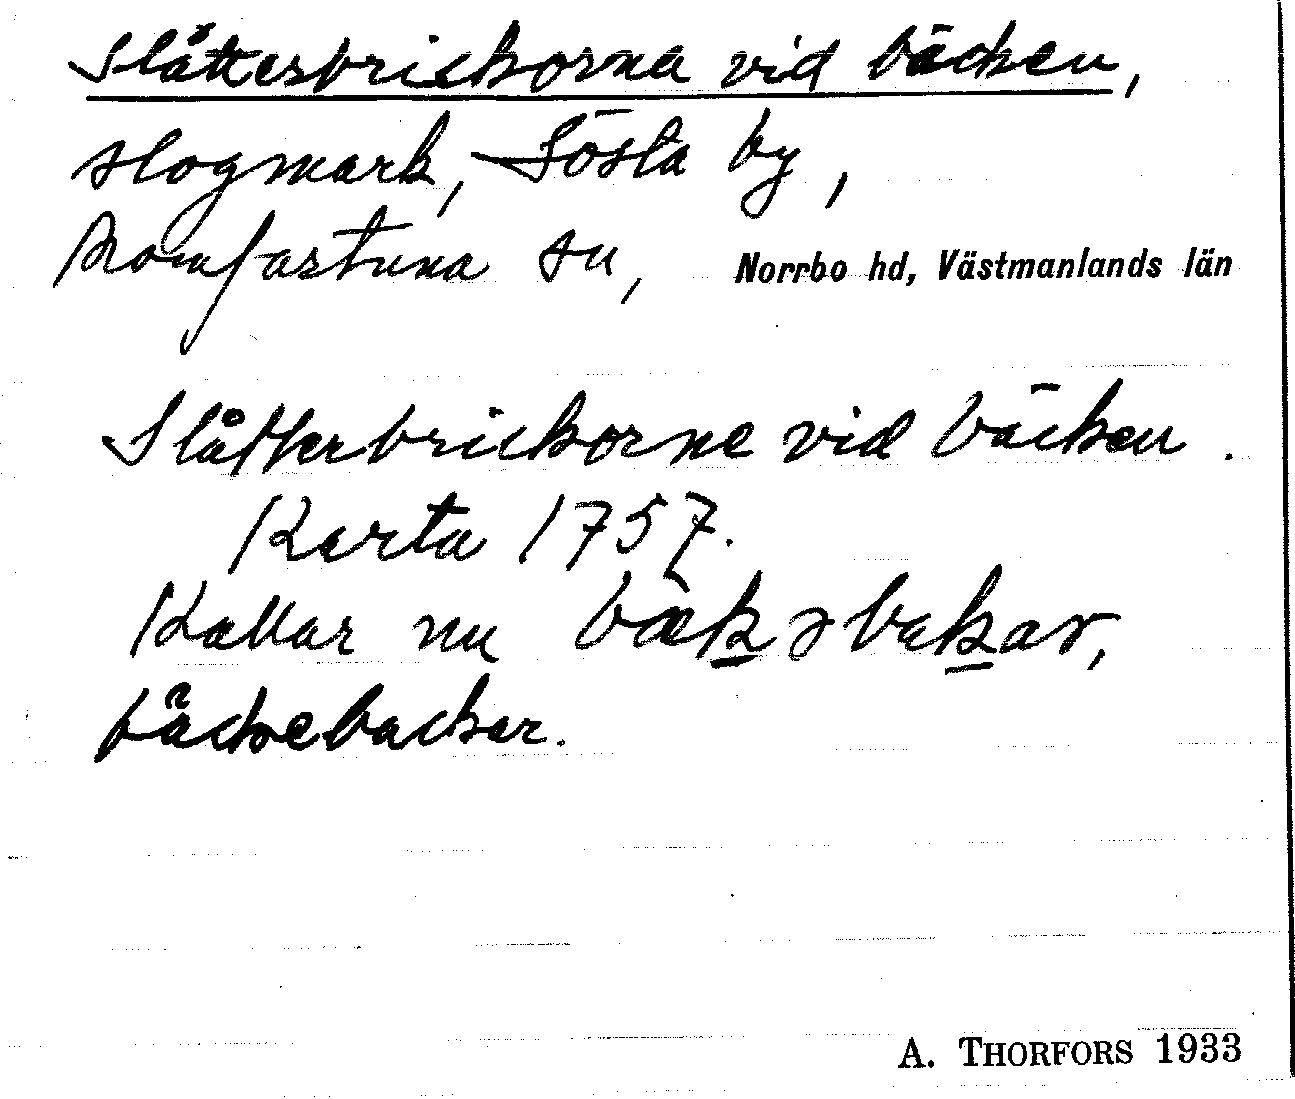 Slåttesbrickorna vid bäcken,
slogmark, Sösta by,
Romfartuna sn, Norrbo hd, Västmanlands län
Slåtterbrickorne vid bäcken.
Karta 1757.
Kallas nu bækəbakar,
bäckebackar.
A. THORFORS 1933